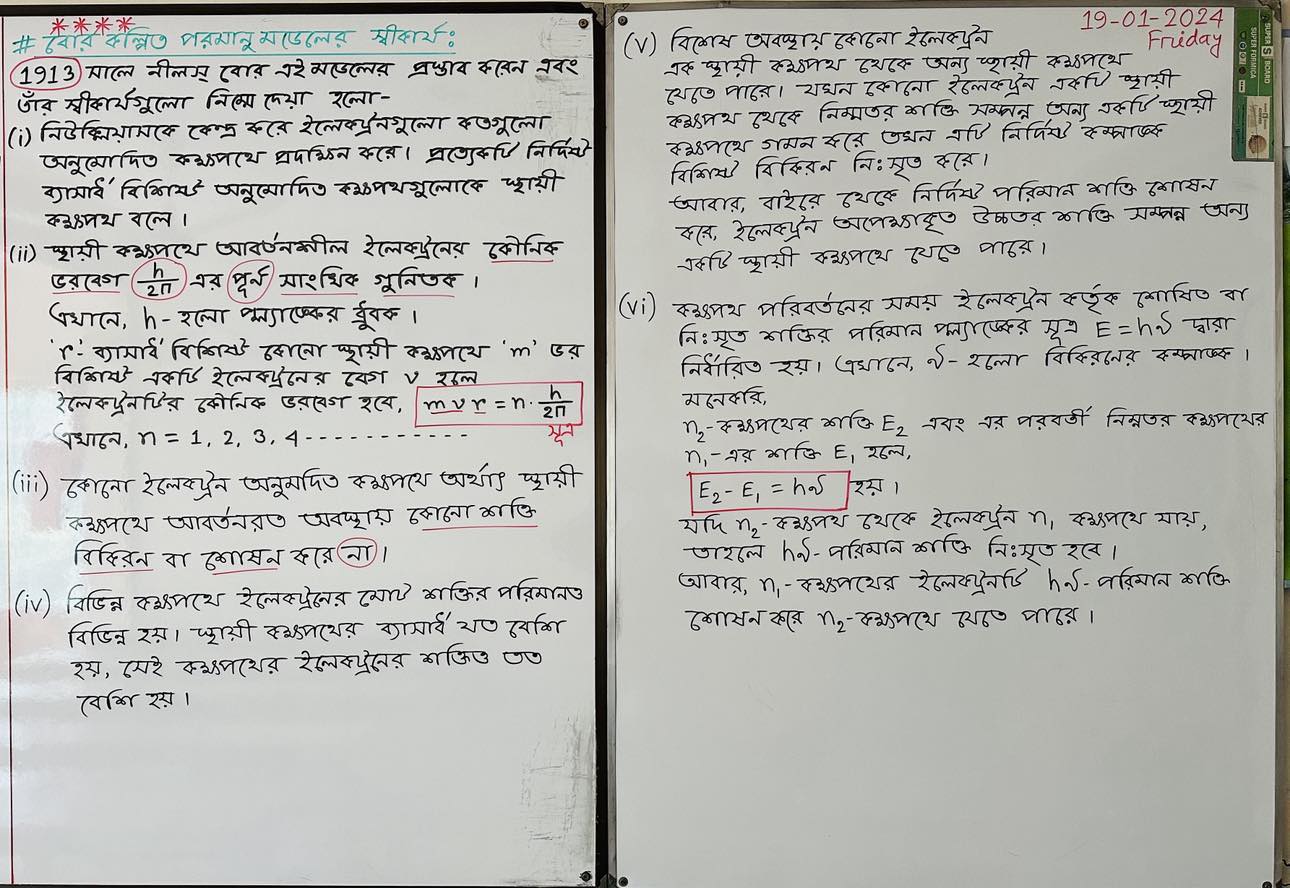 # বোর কল্পিত পরমানু মডেলের স্বীকার্য:
1913 সালে নীলস্ বোর এই মডেলের প্রস্তাব করেন এবং
তাঁর স্বীকার্যগুলো নিম্নে দেয়া হলো-
(i) নিউক্লিয়াসকে কেন্দ্র করে ইলেকট্রনগুলো কতগুলো
অনুমোদিত কক্ষপথে প্রদক্ষিন করে। প্রত্যেকটি নির্দিষ্ট
ব্যাসার্ধ বিশিষ্ট অনুমোদিত কক্ষপথগুলোকে স্থায়ী
কক্ষপথ বলে।
(ii) স্থায়ী কক্ষপথে আবর্তনশীল ইলেকট্রনের কৌনিক
ভরবেগ h/2π এর পূর্ন সাংখিক গুনিতক।
এখানে, h - হলো প্ল্যাঙ্কের ধ্রুবক।
'r' - ব্যাসার্ধ বিশিষ্ট কোনো স্থায়ী কক্ষপথে 'm' ভর
বিশিষ্ট একটি ইলেকট্রনের বেগ v হলে
ইলেকট্রনটির কৌনিক ভরবেগ হবে, mvr = n · h/2π
এখানে, n = 1, 2, 3, 4 - - - - - - - - - - - সূত্র
(iii) কোনো ইলেকট্রন অনুমদিত কক্ষপথে অর্থাৎ স্থায়ী
কক্ষপথে আবর্তনরত অবস্থায় কোনো শক্তি
বিকিরন বা শোষন করে না।
(iv) বিভিন্ন কক্ষপথে ইলেকট্রনের মোট শক্তির পরিমানও
বিভিন্ন হয়। স্থায়ী কক্ষপথের ব্যাসার্ধ যত বেশি
হয়, সেই কক্ষপথের ইলেকট্রনের শক্তিও তত
বেশি হয়।
19-01-2024
Friday
(v) বিশেষ অবস্থায় কোনো ইলেকট্রন
এক স্থায়ী কক্ষপথ থেকে অন্য স্থায়ী কক্ষপথে
যেতে পারে। যখন কোনো ইলেকট্রন একটি স্থায়ী
কক্ষপথ থেকে নিম্নতর শক্তি সম্পন্ন অন্য একটি স্থায়ী
কক্ষপথে গমন করে তখন এটি নির্দিষ্ট কম্পাঙ্ক
বিশিষ্ট বিকিরন নিঃসৃত করে।
আবার, বাইরে থেকে নির্দিষ্ট পরিমান শক্তি শোষন
করে, ইলেকট্রন অপেক্ষাকৃত উচ্চতর শক্তি সম্পন্ন অন্য
একটি স্থায়ী কক্ষপথে যেতে পারে।
(vi) কক্ষপথ পরিবর্তনের সময় ইলেকট্রন কর্তৃক শোষিত বা
নিঃসৃত শক্তির পরিমান প্ল্যাঙ্কের সূত্র E = hν দ্বারা
নির্ধারিত হয়। এখানে, ν - হলো বিকিরনের কম্পাঙ্ক।
মনেকরি,
n₂ - কক্ষপথের শক্তি E₂ এবং এর পরবর্তী নিম্নতর কক্ষপথের
n₁ - এর শক্তি E₁ হলে,
E₂ - E₁ = hν হয়।
যদি n₂ - কক্ষপথ থেকে ইলেকট্রন n₁ কক্ষপথে যায়,
তাহলে hν - পরিমান শক্তি নিঃসৃত হবে।
আবার, n₁ - কক্ষপথের ইলেকট্রনটি hν - পরিমান শক্তি
শোষন করে n₂ - কক্ষপথে যেতে পারে।
SUPER BOARD
SUPER FORMICA